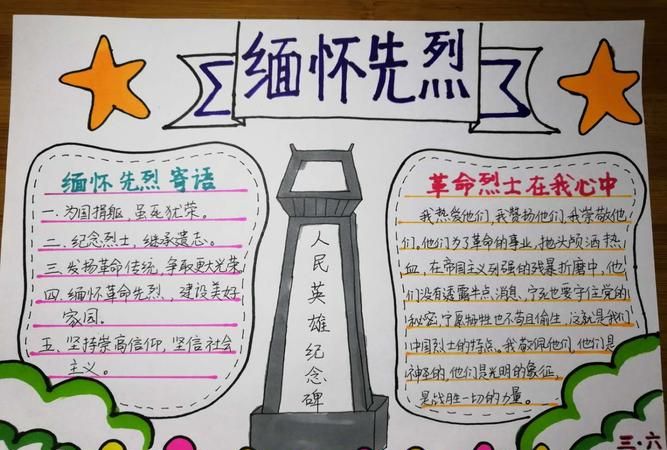 缅怀先烈
缅怀先烈寄语
一.为国捐躯,虽死犹荣。
二.纪念烈士,继承遗志。
三.发扬革命传统,争取更大光荣
四.缅怀革命先烈、建设美好
家园。
五、坚持崇高信仰,坚信社会
主义。
人民英雄纪念碑
革命烈士在我心中
我热爱他们,我赞扬他们,我崇敬他
们,他们为了革命的事业,抛头颅洒热
血,在帝国主义列强的残暴折磨中,他
们没有透露半点消息,宁死也要守住党的
秘密,宁愿牺牲也不苟且偷生,这就是我们
中国烈士的特点。我敬佩他们,他们是
神圣的,他们是光明的象征,
是战胜一切的力量。
三·六